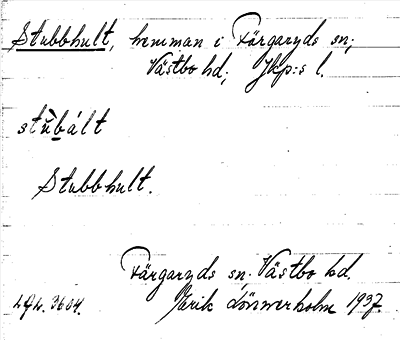 Stubbhult, hemman i Färgaryds sn;
Västbo hd; Jkp:s l.
stù̱bált
Stubbhult.
Färgaryds sn. Västbo hd.
Erik Lönnerholm 1937.